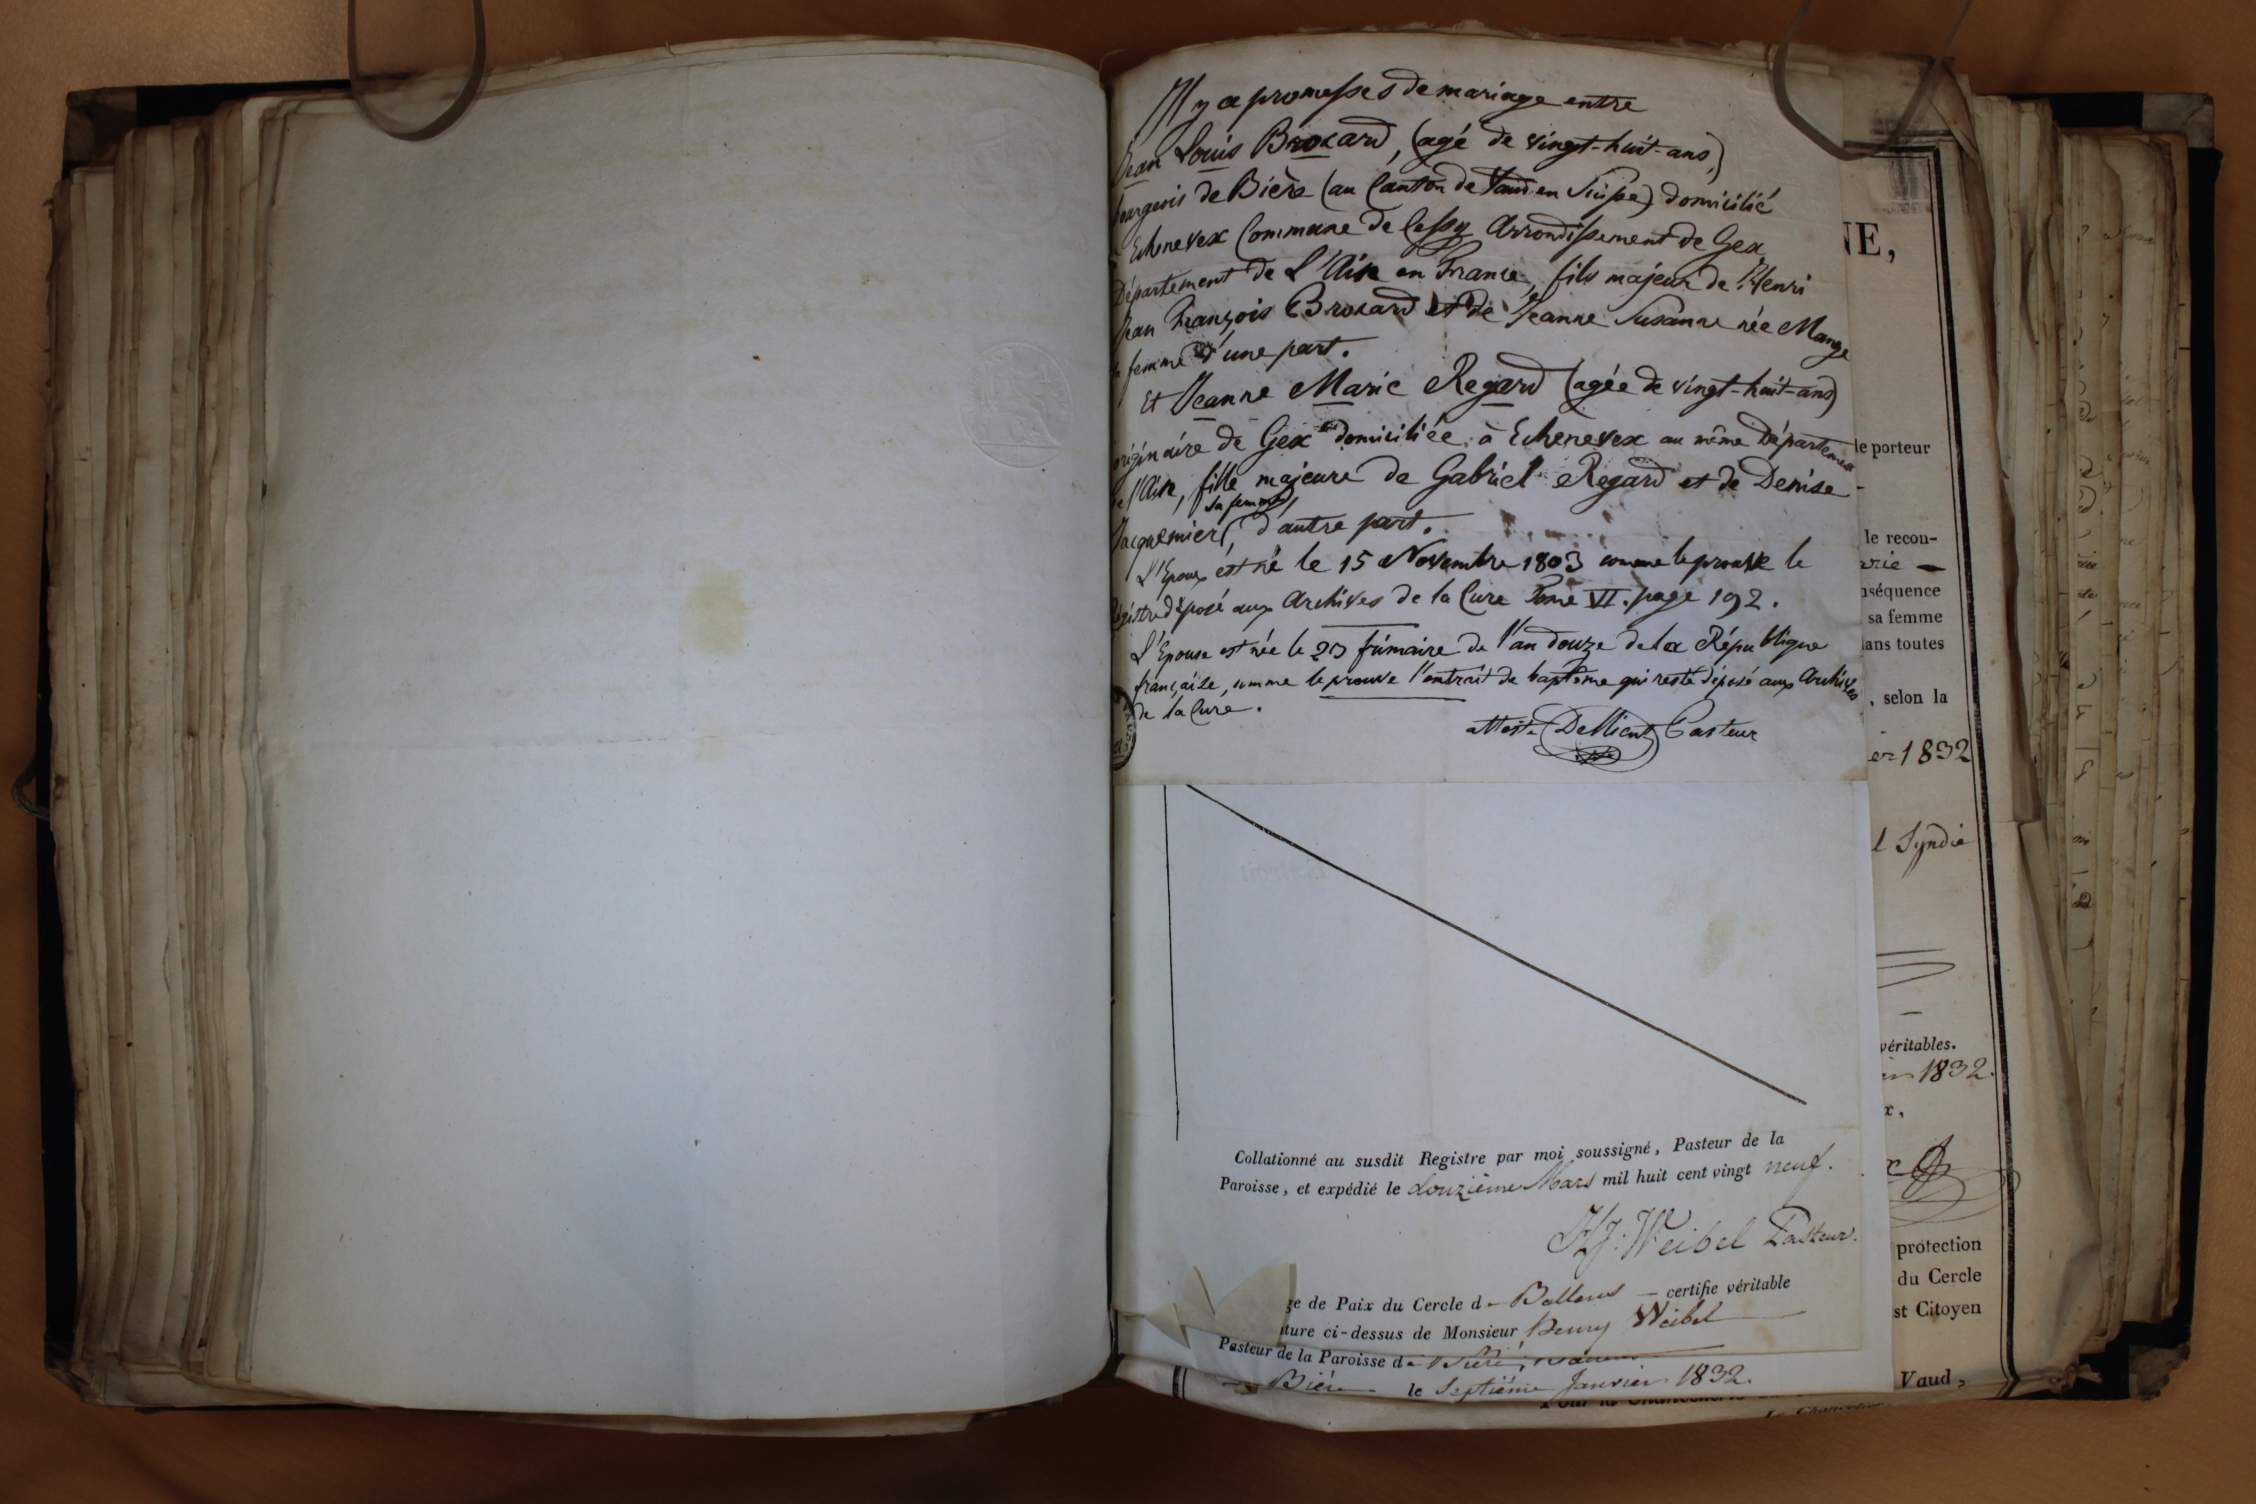 Il y a promesses de mariage entre
Jean Louis Broxard, (agé de vingt-huit-ans,)
bourgeois de Bière (au Canton de Vaud en Suisse) domicilié
Echenevex Commune de Cessy Arrondissement de Gex
Département de L'Ain en France, fils majeur de Henri
Jean François Broxard et de Jeanne Susanne née Mange
sa femme d'une part.
Et Jeanne Marie Regard (agée de vingt-huit-ans)
originaire de Gex domiciliée à Echenevex au même Département
de l'Ain, fille majeure de Gabriel Regard et de Denise
sa femme,
Jacquemier, d'autre part.
L'Epoux est né le 15 Novembre 1803 comme le prouve le
Régistre déposé aux Archives de la Cure Tome VI. page 192.
L'Epouse est née le 23 frimaire de l'an douze de la République
française, comme le prouve l'extrait de baptême qui reste déposé aux Archives
de la Cure.
atteste Pasteur
Collationné au susdit Registre par moi soussigné, Pasteur de la
Paroisse, et expédié le douzième Mars mil huit cent vingt neuf.
HJ: Weibel Pasteur.
ge de Paix du Cercle de Ballens — certifie véritable
ture ci-dessus de Monsieur Henry Weibel
Pasteur de la Paroisse de Bière,
Bière le Septième Janvier 1832.
NE,
le porteur
le recon-
arie —
nséquence
sa femme
dans toutes
, selon la
er 1832
l Syndic
véritables.
1832.
x,
protection
du Cercle
st Citoyen
Vaud,